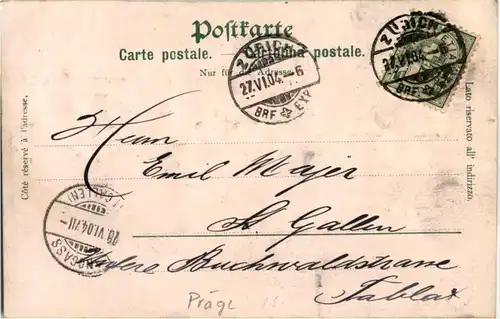 Postkarte
Carte postale. Cartolina postale.
Nur für die Adresse.
ZÜRICH
27.VI.04. 6
BRF. EXP.
ZÜRICH
27.VI.04. 6
BRF. EXP.
Côté réservé à l'adresse.
Lato riservato all' indirizzo.
Herrn
Emil Majer
St. Gallen
Buchwaldstrasse
Tablat
(ST. GALLEN)
28.VI.04.VII
LANGGASS
Präge